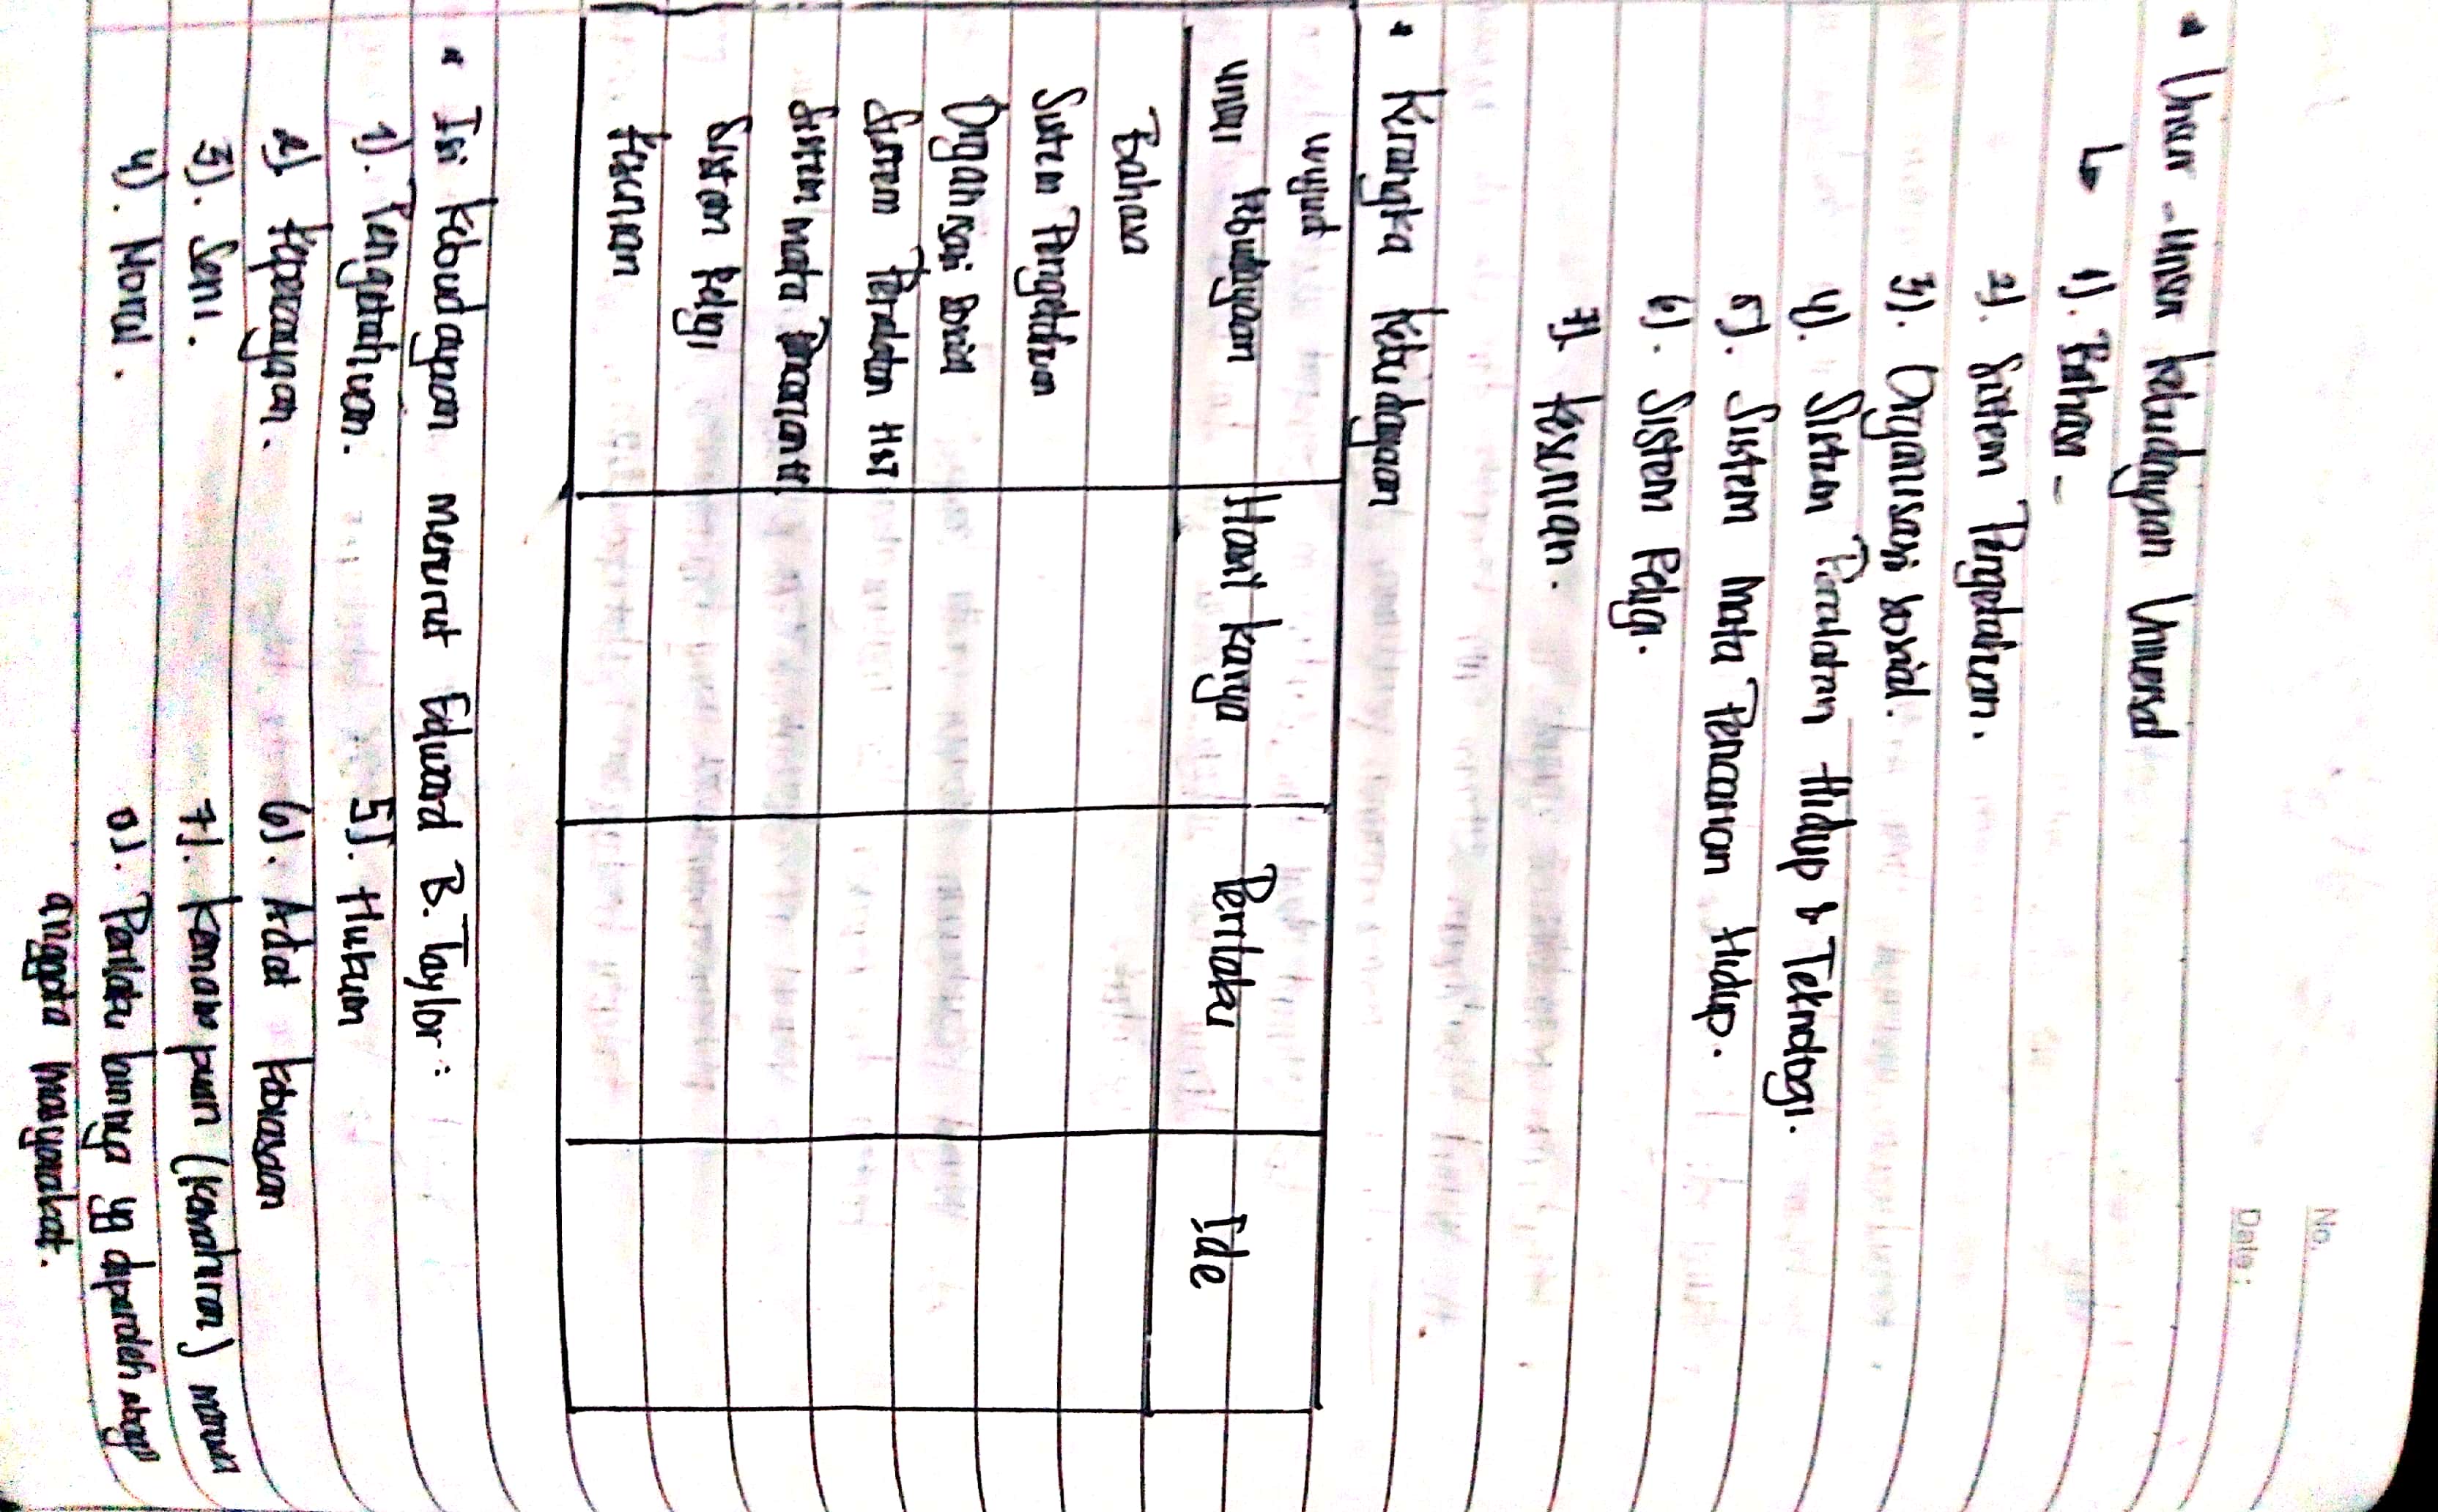 No.
Date:
• Unsur - Unsur Kebudayaan Universal
↳ 1). Bahasa -
2). Sistem Pengetahuan.
3). Organisasi Sosial.
4). Sistem Peralatan Hidup & Teknologi.
5). Sistem Mata Pencarian Hidup.
6). Sistem Religi.
7). Kesenian.
• Kerangka Kebudayaan
Wujud
Unsur Kebudayaan Hasil Karya Perilaku Ide
Bahasa
Sistem Pengetahuan
Organisasi Sosial
Sistem Peralatan H&T
Sistem Mata Pencarian H
Sistem Religi
Kesenian
• Isi Kebudayaan Menurut Edward B. Taylor :
1). Pengetahuan. 5). Hukum
2). Kepercayaan. 6). Adat Kebiasaan
3). Seni. 7). Kemampuan (kemahiran)
4). Moral. 8). Perilaku lainnya yg diperoleh sbagai
anggota masyarakat.